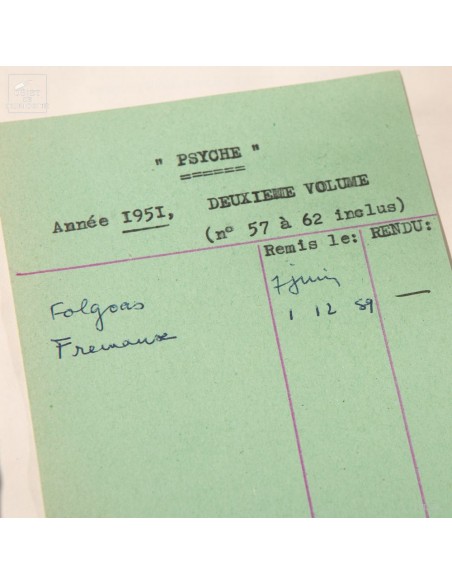 " PSYCHE "
DEUXIEME VOLUME
Année 1951,
(n° 57 à 62 inclus)
Remis le: RENDU:
Folgoas 7 juin —
Fremaux 1 12 59